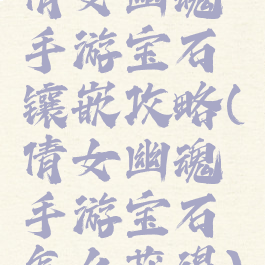 倩女幽魂
手游宝石
镶嵌攻略(
倩女幽魂
手游宝石